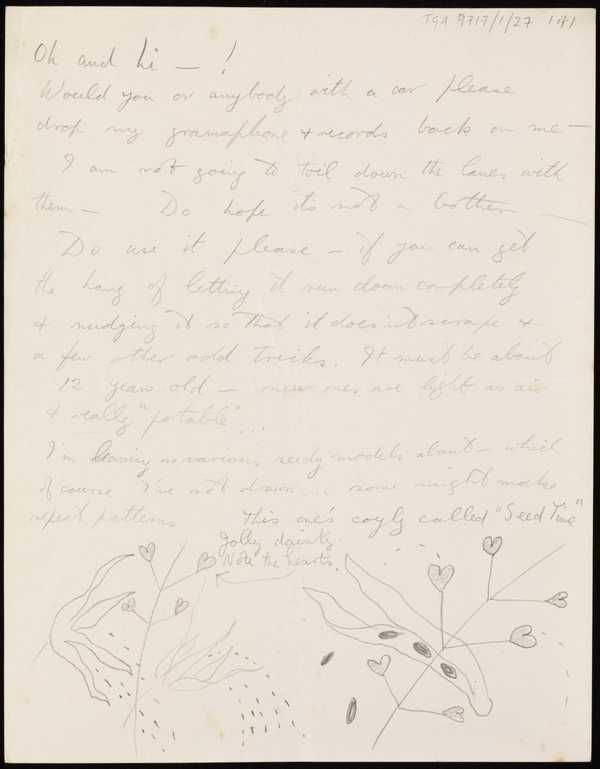 TGA 9717/1/27 1 of 1
Oh and hi — !
Would you or anybody with a car please
drop my gramaphone & records back on me —
I am not going to toil down the lanes with
them — Do hope its not a bother —
Do use it please — if you can get
the hang of letting it run down completely
& nudging it so that it doesn't scrape &
a few other odd tricks. It must be about
12 years old — new ones are light as air
& really "portable" ...
I'm leaving various seedy models about — which
of course I've not drawn ... some might make
repeat patterns This one's coyly called "Seed Time"
Jolly dainty.
Note the hearts.